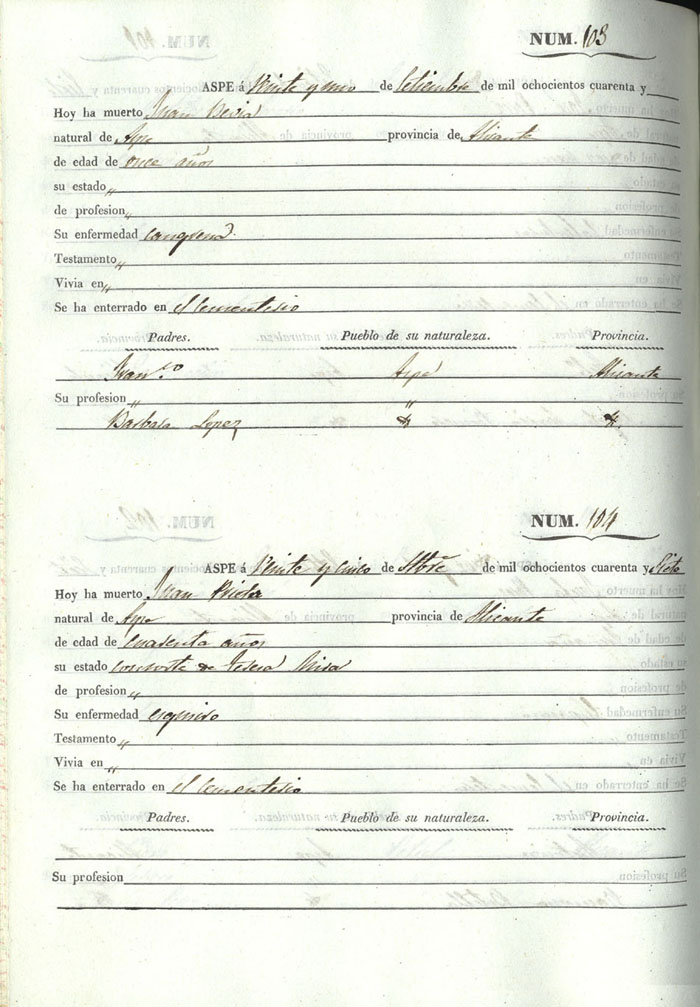 NUM. 103
ASPE á Veinte y uno de Setiembre de mil ochocientos cuarenta y
Hoy ha muerto Juan
natural de Aspe provincia de Alicante
de edad de once años
su estado „
de profesion „
Su enfermedad cangrena
Testamento „
Vivia en „
Se ha enterrado en el Cementerio
Padres. Pueblo de su naturaleza. Provincia.
Aspe Alicante
Su profesion „ „
Barbara Lopez
NUM. 104
ASPE á Veinte y cinco de de mil ochocientos cuarenta y Siete
Hoy ha muerto Juan
natural de Aspe provincia de Alicante
de edad de cuarenta años
su estado consorte de Teresa Mira
de profesion „
Su enfermedad
Testamento „
Vivia en „
Se ha enterrado en el Cementerio
Padres. Pueblo de su naturaleza. Provincia.
Su profesion